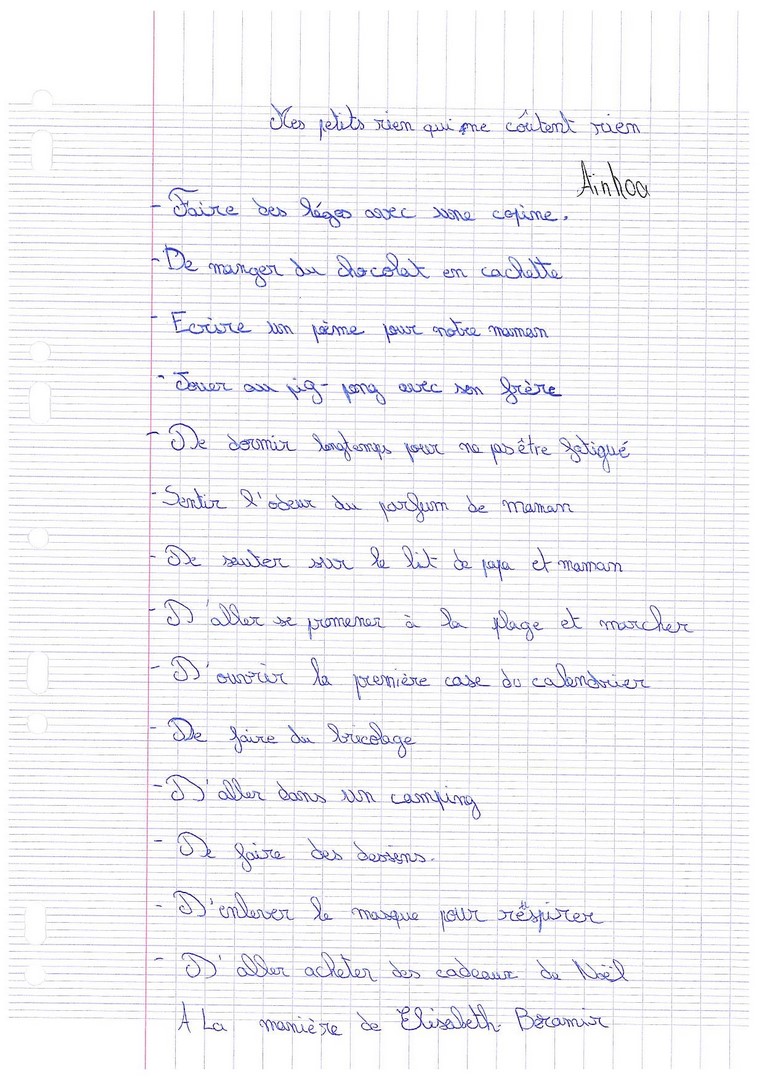 Mes petits rien qui me coûtent rien
Ainhoa
- Faire des légos avec une copine.
- De manger du chocolat en cachette
- Ecrire un pöeme pour notre maman
- Jouer au pig-pong avec son frère
- De dormir longtemps pour ne pas être fatigué
- Sentir l'odeur du parfum de maman
- De sauter sur le lit de papa et maman
- D'aller se promener à la plage et marcher
- D'ouvrir la première case du calendrier
- De faire du bricolage
- D'aller dans un camping
- De faire des dessins.
- D'enlever le masque pour respirer
- D'aller acheter des cadeaux de Noël
A La manière de Elisabeth Beramir